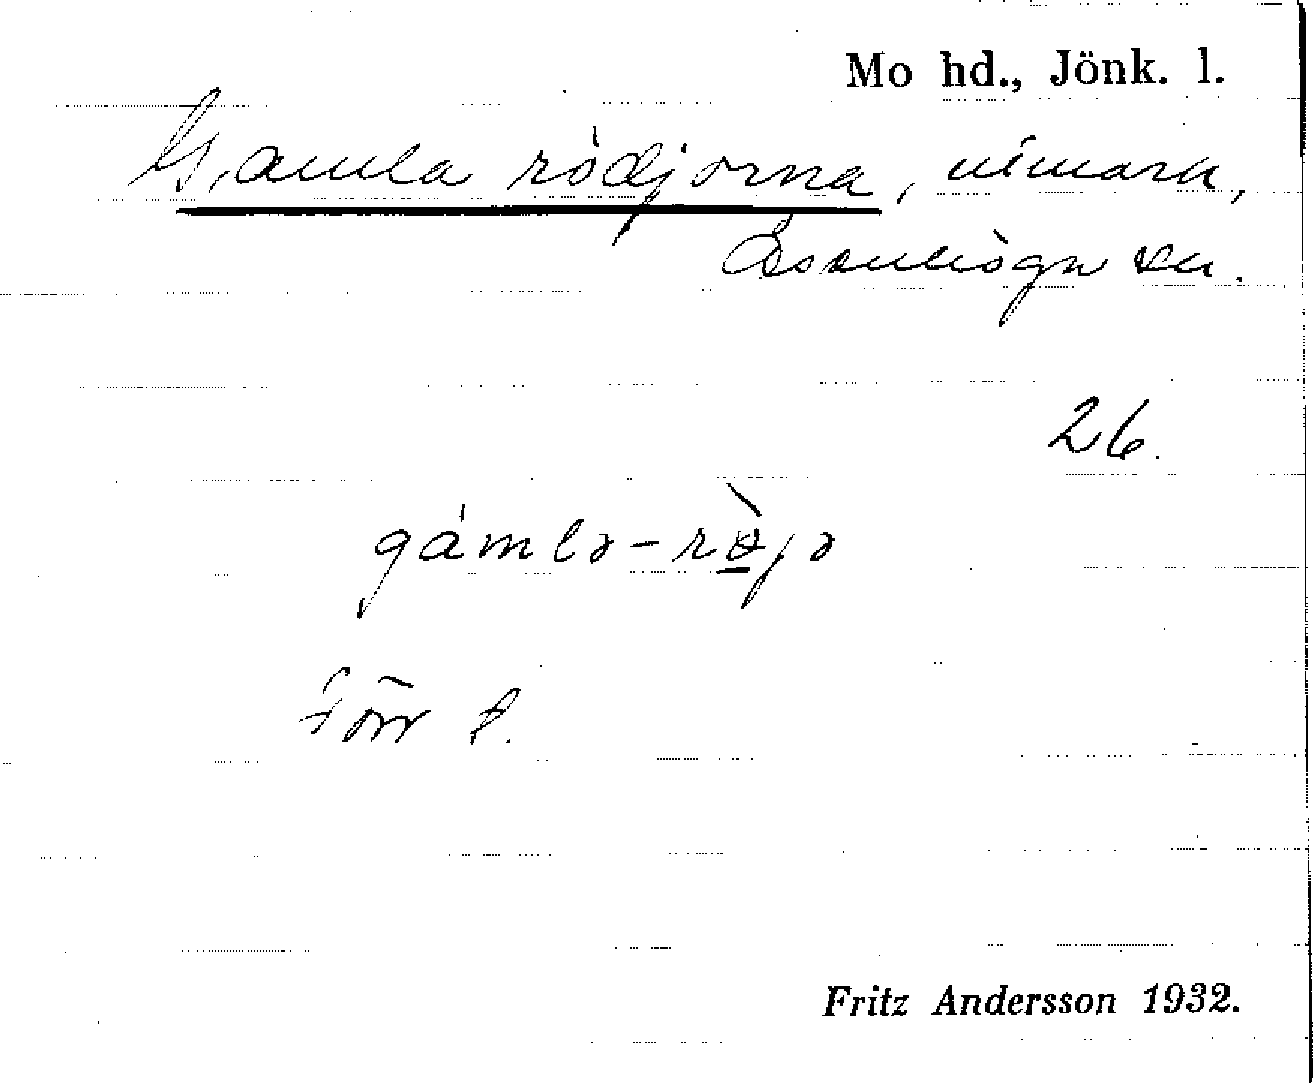 Mo hd., Jönk. l.
Gamla rödjorna, utmark,
Åsenhöga sn.
26.
gámlə-rɵ̀jə
Förr t.
Fritz Andersson 1932.